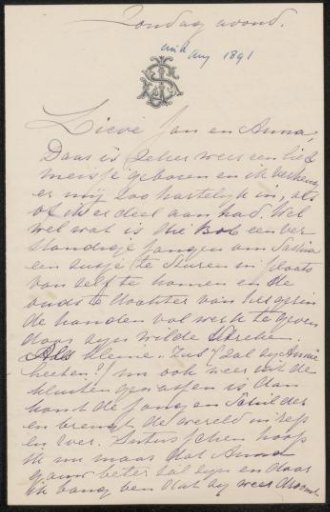 Zondag avond.
mid Aug 1891
Lieve Jan en Anna,
Daar is zeker weer een lief
mensje geboren en ik verheug
er mij zoo hartelijk in, als
of ik er deel aan had. Wel
wel wat is die Bob een ver
standige jongen om Saskia
een zusje te sturen in plaats
van zelf te komen en de
oudste dochter van het gezin
de handen vol werk te geven
door zijn wilde streken.
Als kleine zus zal zij Annie
heeten? en ook weer uit de
kluiten gewassen is dan
komt de jongen Schilder
en brengt de wereld in rep
en roer. Intusschen hoop
ik nu maar dat Anna
gauw beter zal zijn en daar
ik bang ben dat zij weer